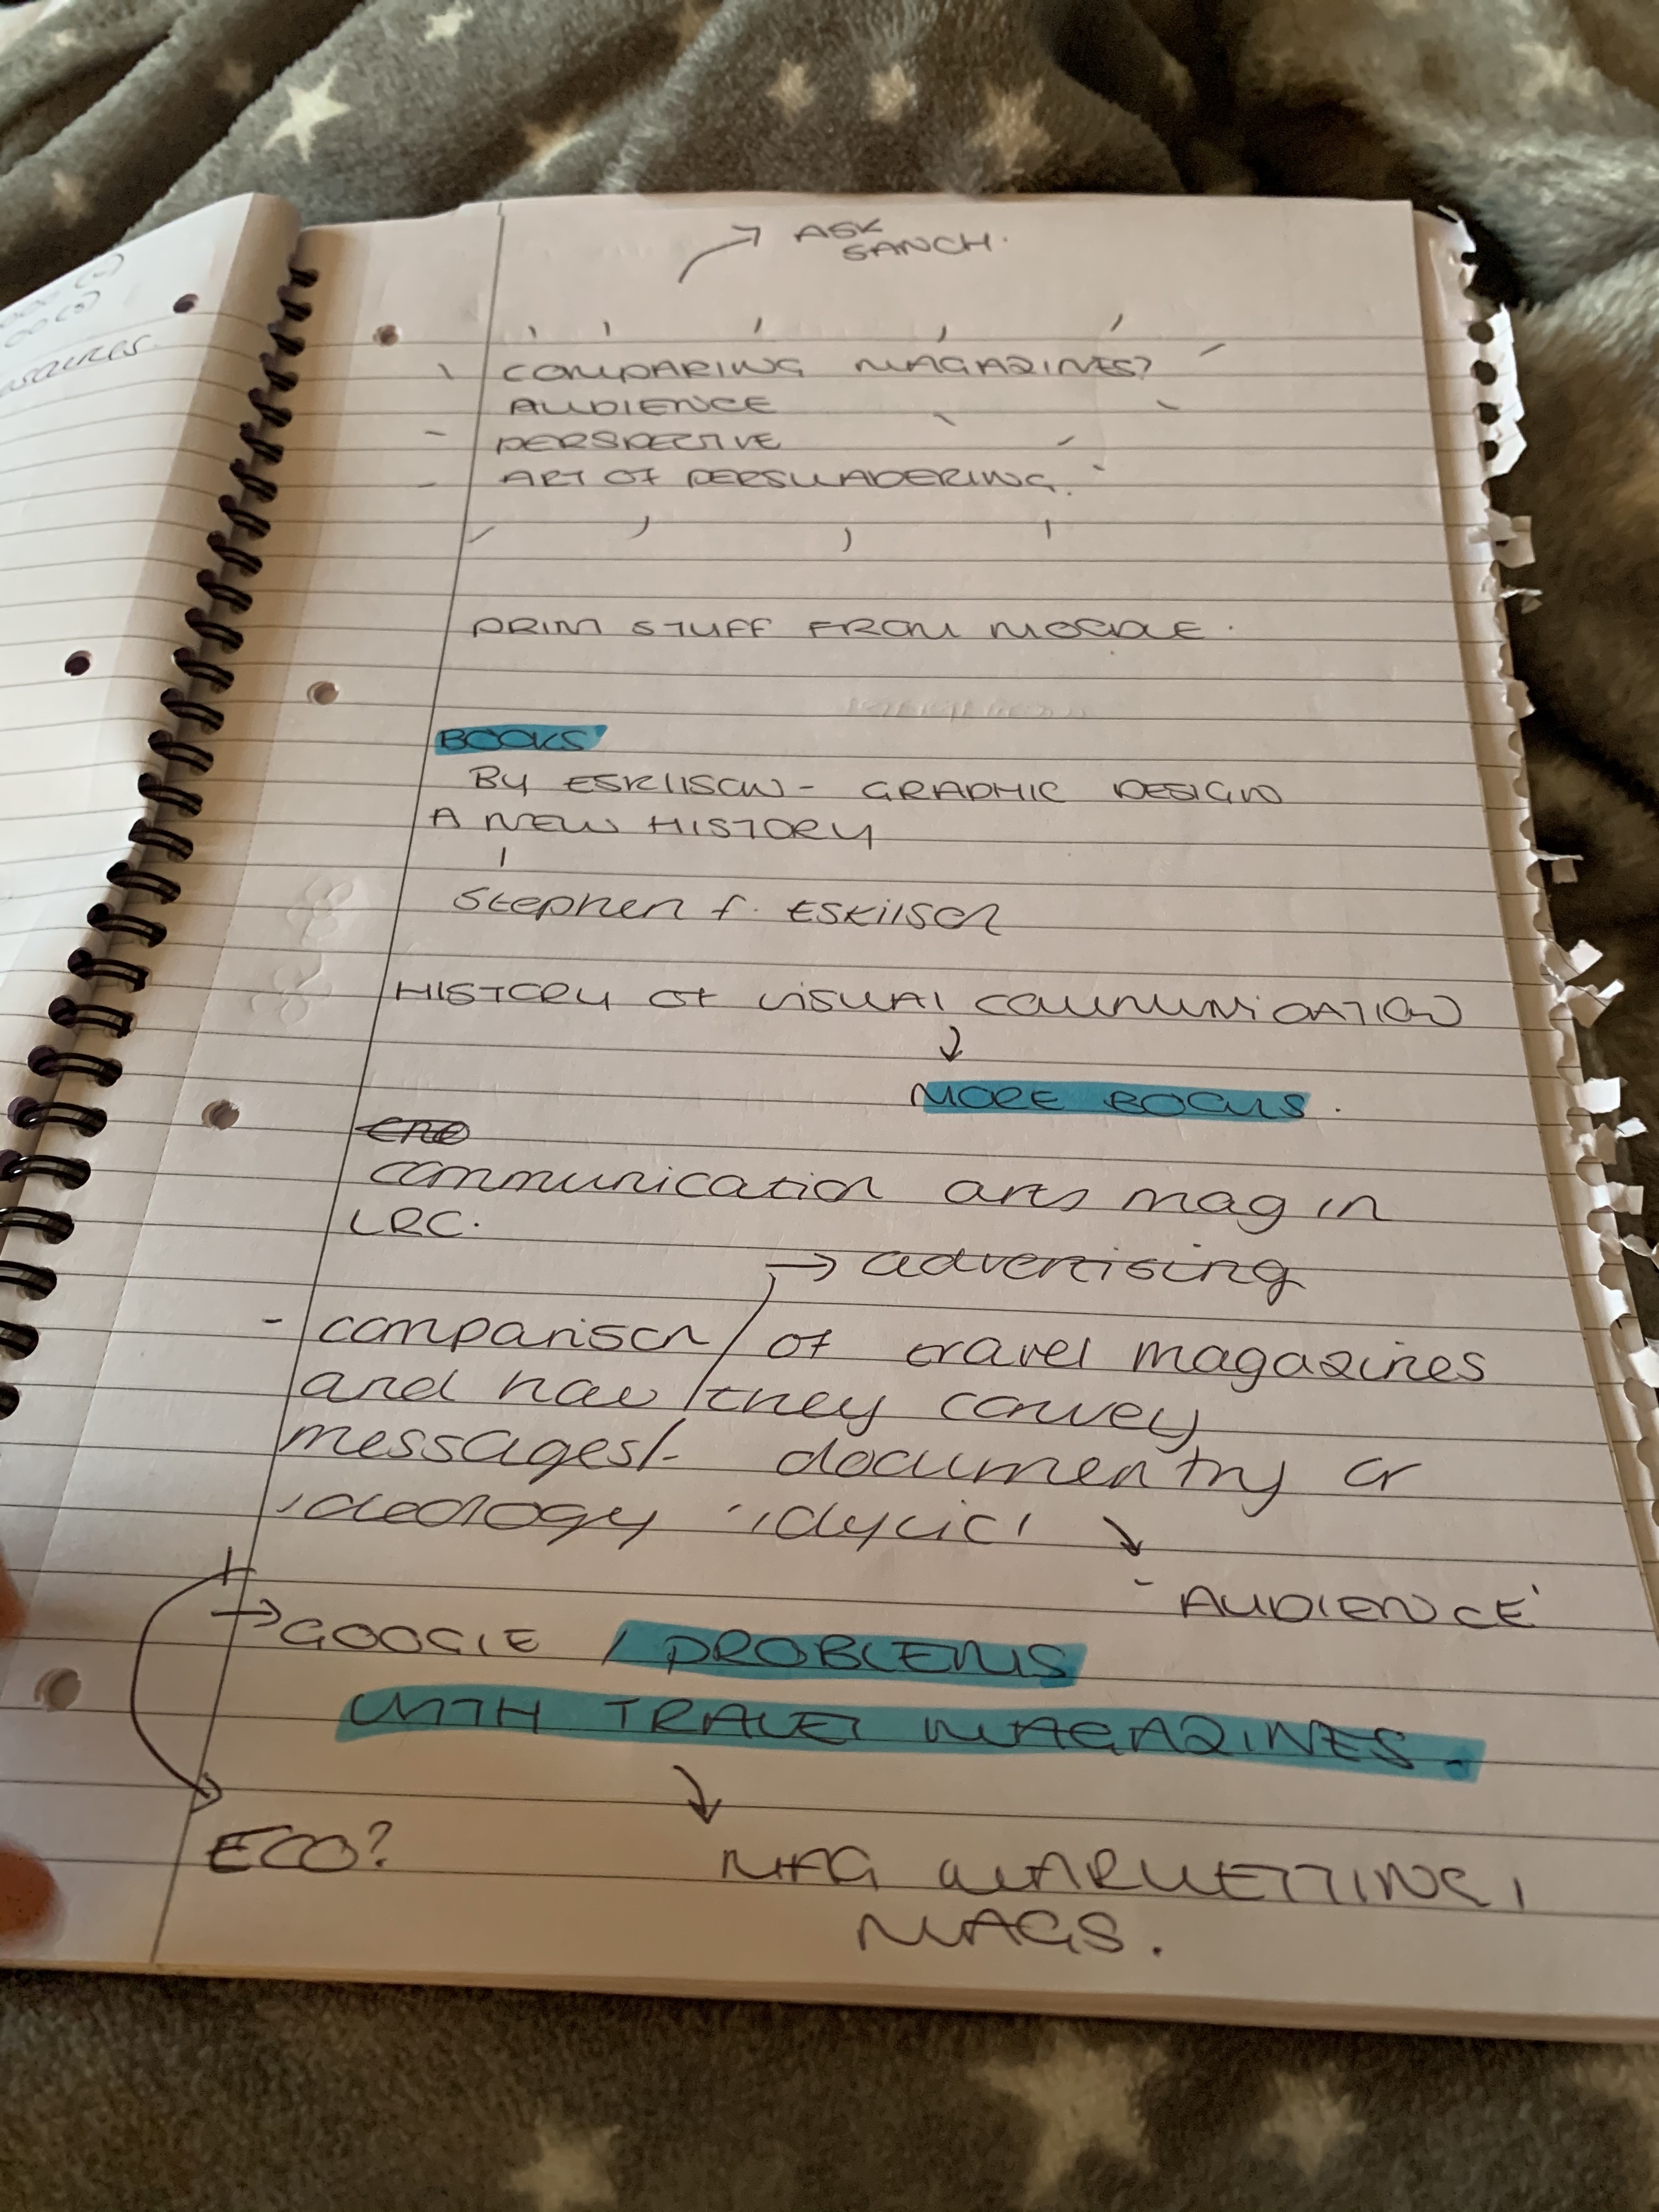 ASK
SANCH.
COMPARING MAGAZINES?
AUDIENCE
PERSPECTIVE
ART OF PERSUADERING.
PRINT STUFF FROM MOODLE.
BOOKS
BY ESKIISON - GRAPHIC DESIGN
A NEW HISTORY
Stephen f. ESKilSon
HISTORY OF VISUAL COMMUNICATION
MORE BOOKS.
communication arts mag in
LRC.
→ advertising
- comparison of travel magazines
and how they convey
messages - documentry or
ideology 'idylic'
- AUDIENCE
→ GOOGLE / PROBLEMS
WITH TRAVEL MAGAZINES.
ECO?
MAG MARKETTING,
MAGS.